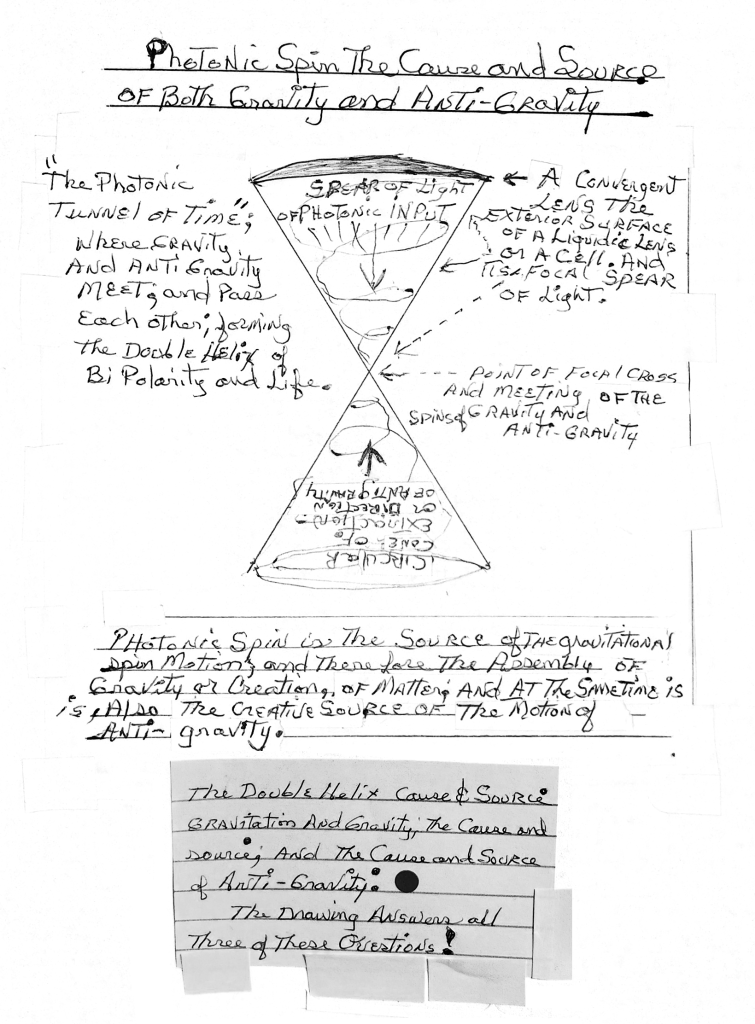 Photonic Spin The Cause and Source
OF Both Gravity and ANTI-Gravity
"The Photonic
TUNNEL OF TIME";
WHERE GRAVITY
AND ANTI Gravity
MEET; and Pass
Each other; forming
the Double Helix of
Bi Polarity and Life.
SPEAR OF Light
OF PHOTONIC INPUT
A CONVERGENT
LENS THE
EXTERIOR SURFACE
OF A LIQUIDIC LENS
OR A CELL. AND
FOCAL SPEAR
OF Light.
POINT OF FOCAL CROSS
AND MEETING OF THE
SPINS of GRAVITY AND
ANTI-GRAVITY
CIRCULAR
CONE OF
EXTRACTION
OR DIRECTION
OF ANTIGRAVITY
PHOTONIC SPIN is The SOURCE of THE gravitational
Spin Motion; and Therefore The Assembly OF
Gravity or Creation, OF MATTER; AND AT THE SAMETIME is
is, Also The CREATIVE SOURCE OF The MOTION of
ANTI-gravity.
The Double Helix Cause & Source
GRAVITATION And Gravity; the Cause and
source; AND The Cause and Source
of Anti-Gravity:
The Drawing Answers all
Three of These Questions!